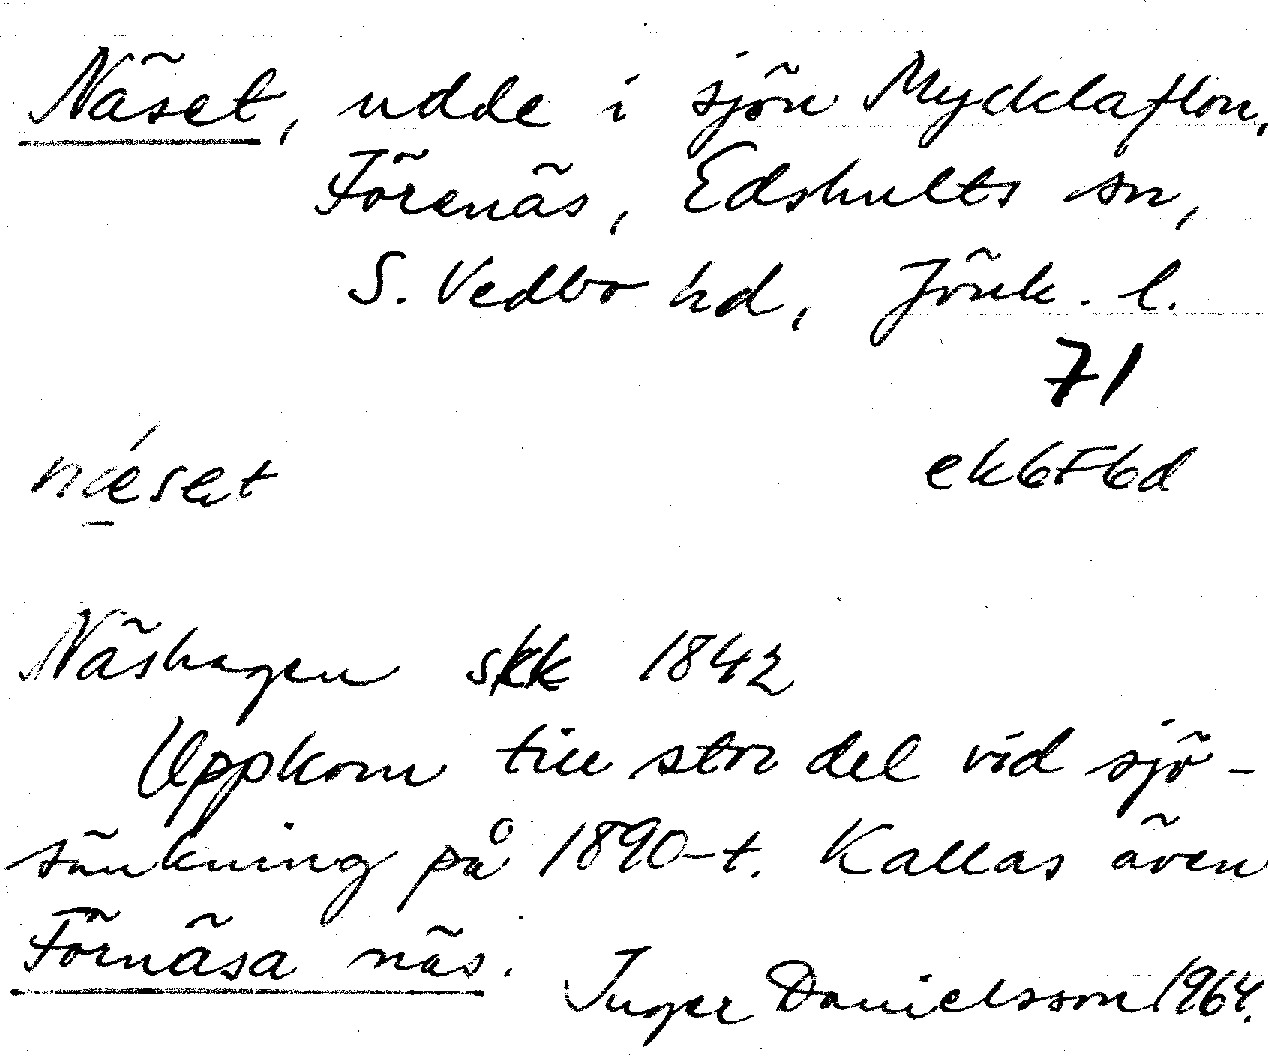 Näset, udde i sjön Mycklaflon,
Förenäs, Edshults sn,
S. Vedbo hd, Jönk. l.
71
nǽ̱sət
ek6F6d
Näshagen skk 1842
Uppkom till stor del vid sjö-
sänkning på 1890-t. Kallas även
Förnäsa näs.
Inger Danielsson 1964.